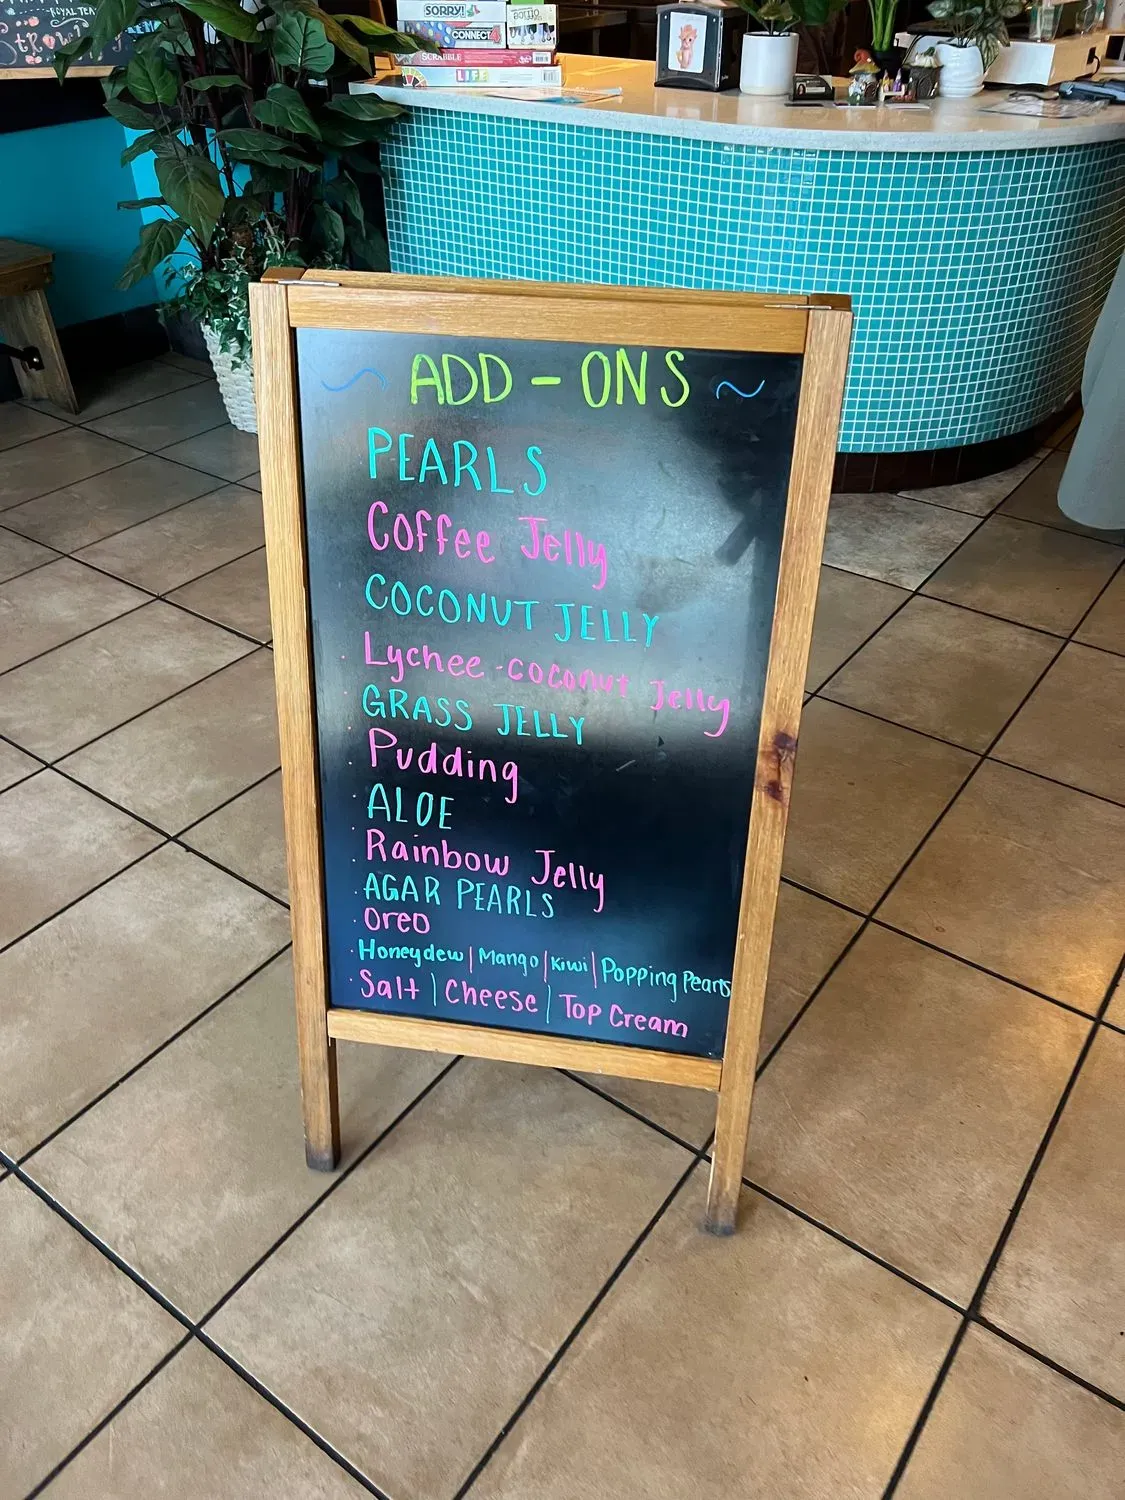 ROYAL TEA
SORRY!
Office
CONNECT 4
SCRABBLE
LIFE
~ ADD - ONS ~
PEARLS
Coffee Jelly
COCONUT JELLY
· Lychee-coconut Jelly
· GRASS JELLY
· Pudding
· ALOE
· Rainbow Jelly
· AGAR PEARLS
· Oreo
· Honeydew | Mango | Kiwi | Popping Pearls
· Salt | Cheese | Top Cream